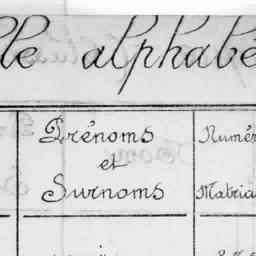 le alphabé
Prénoms
et
Surnoms
Numér
Matric